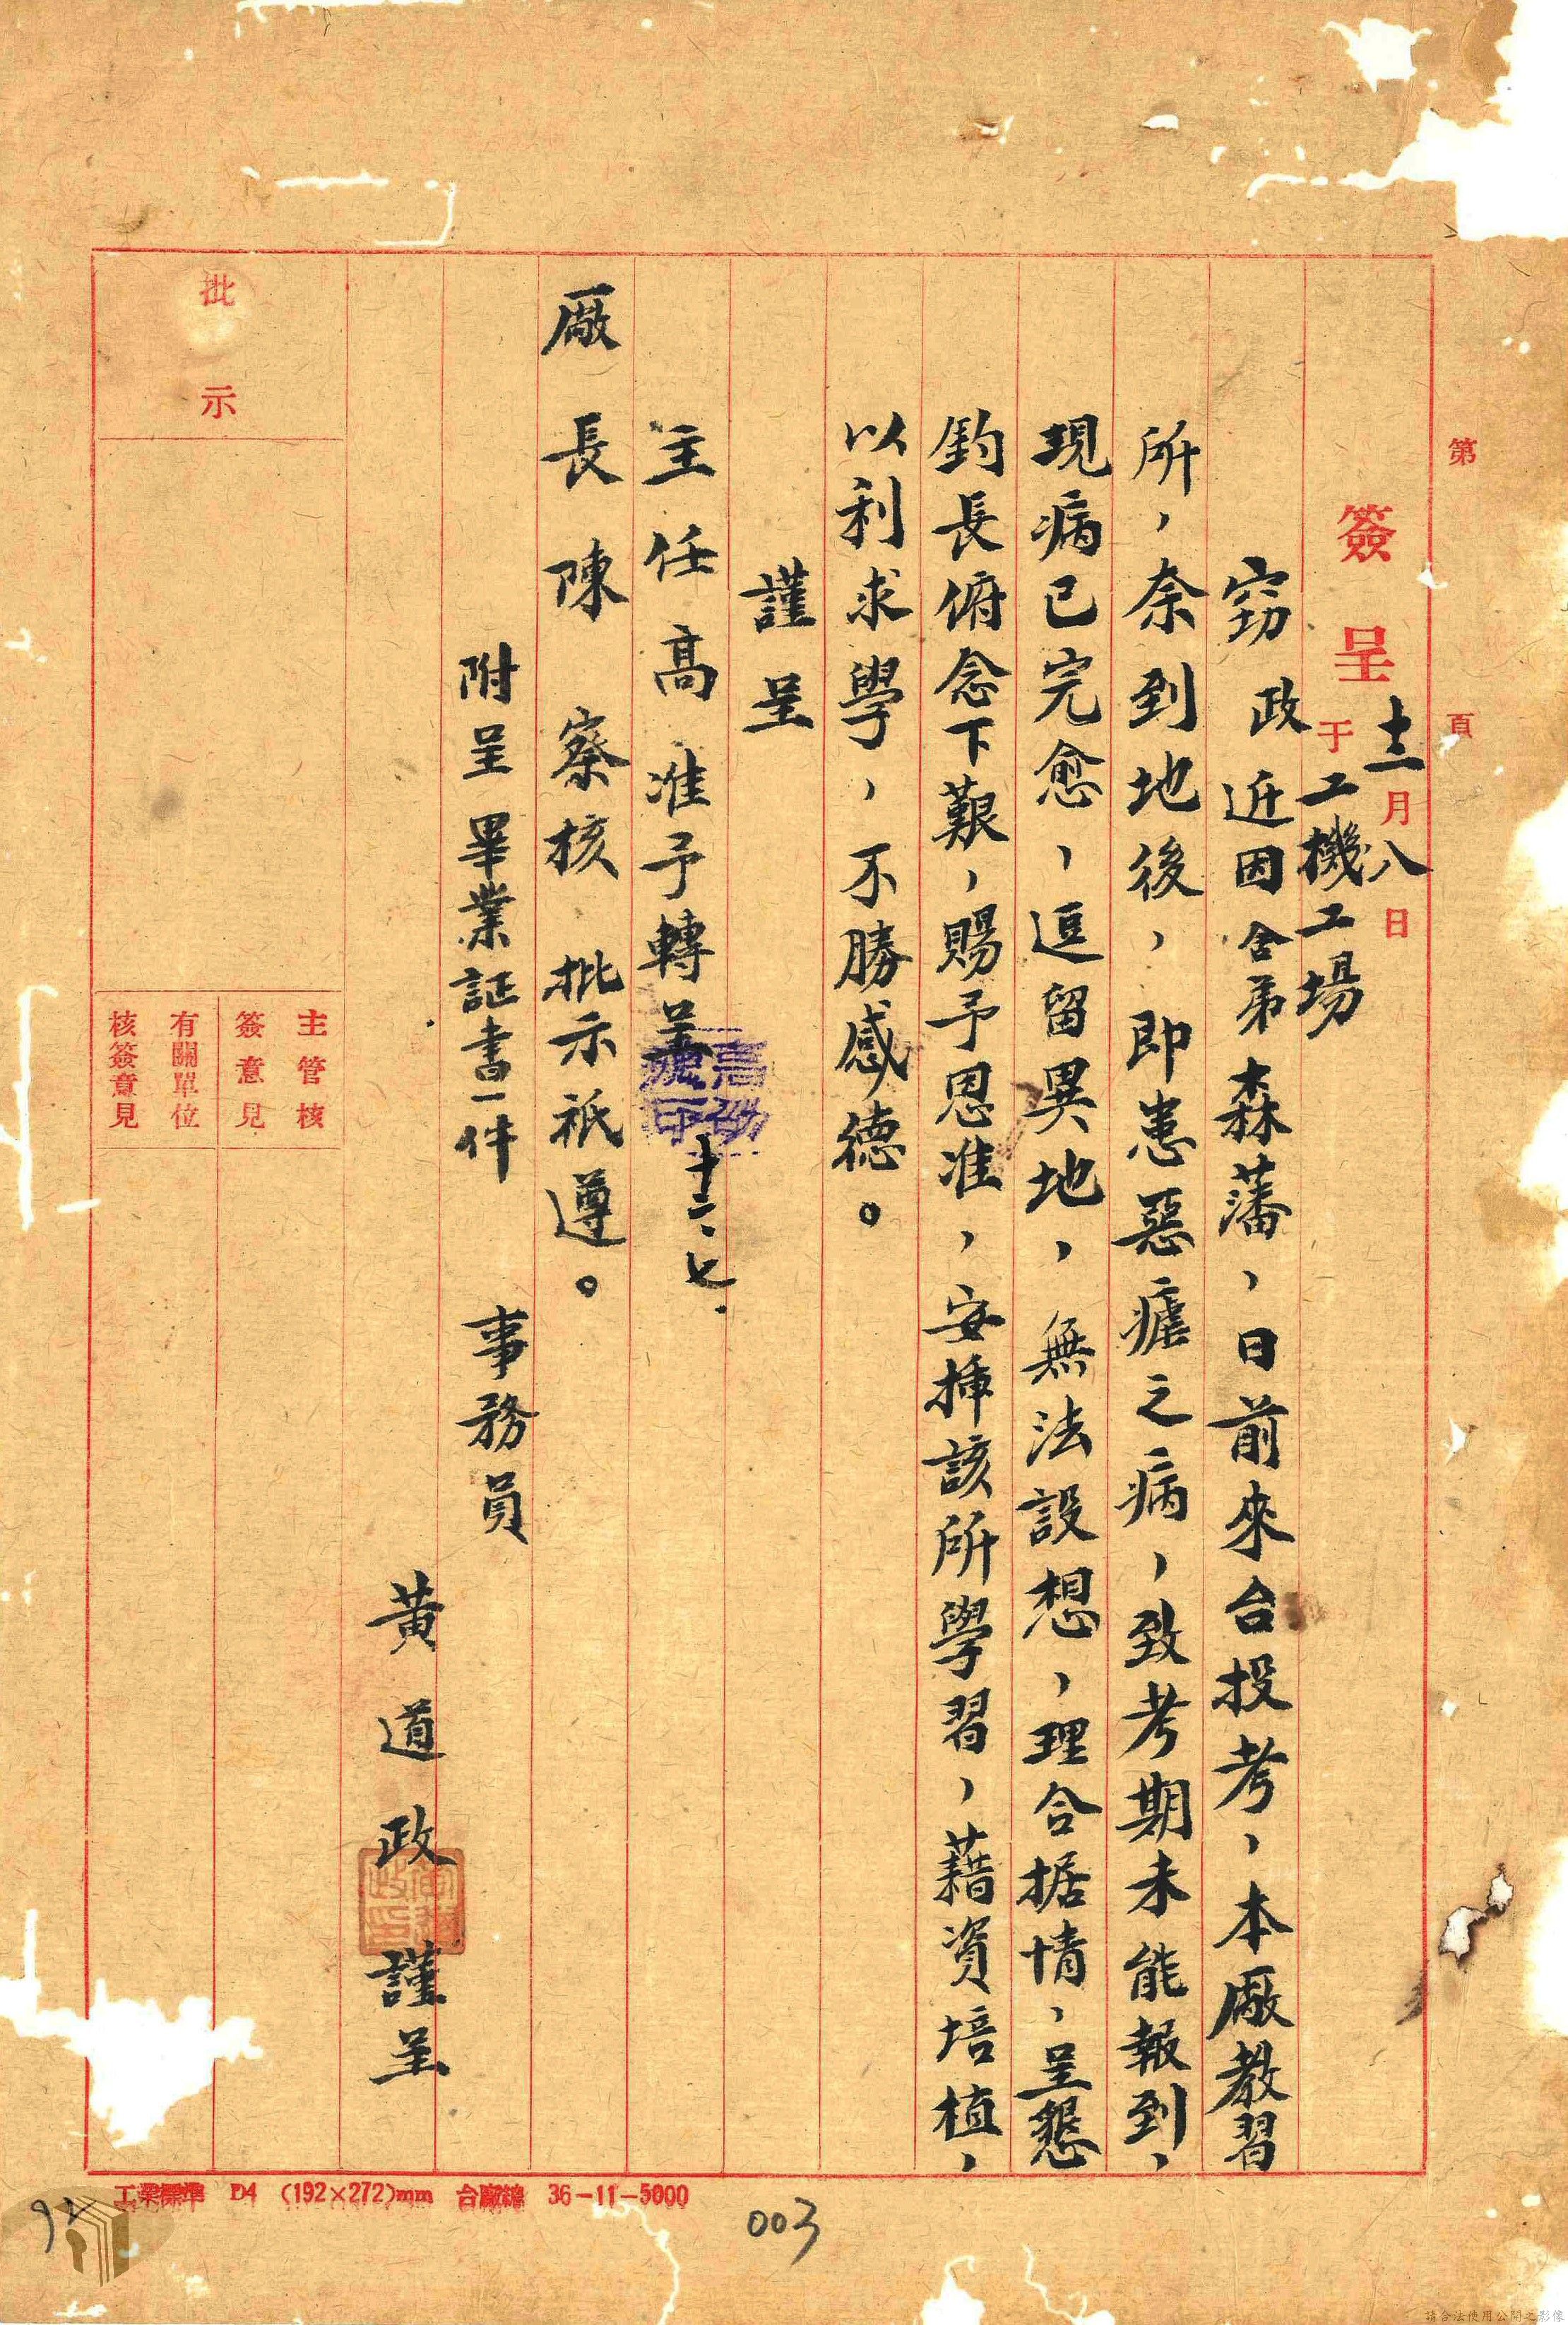 第 頁
簽呈 十二月八日
于工機工場
竊政近因舍弟森藩，日前來台投考，本廠教習
所，奈到地後，即患惡瘧之病，致考期未能報到，
現病已完愈，逗留異地，無法設想，理合据情，呈懇
鈞長俯念下艱，賜予恩准，安揷該所學習，藉資培植，
以利求學，不勝感德。
謹呈
主任高 准予轉呈 十二、七、
廠長陳 察核 批示祇遵。
附呈畢業証書一件
事務員
黃道政謹呈
批示
主管核
簽意見
有關單位
核簽意見
工業標準 D4 (192×272)mm 台廠繪 36-11-5000
003
92
請合法使用公開之影像